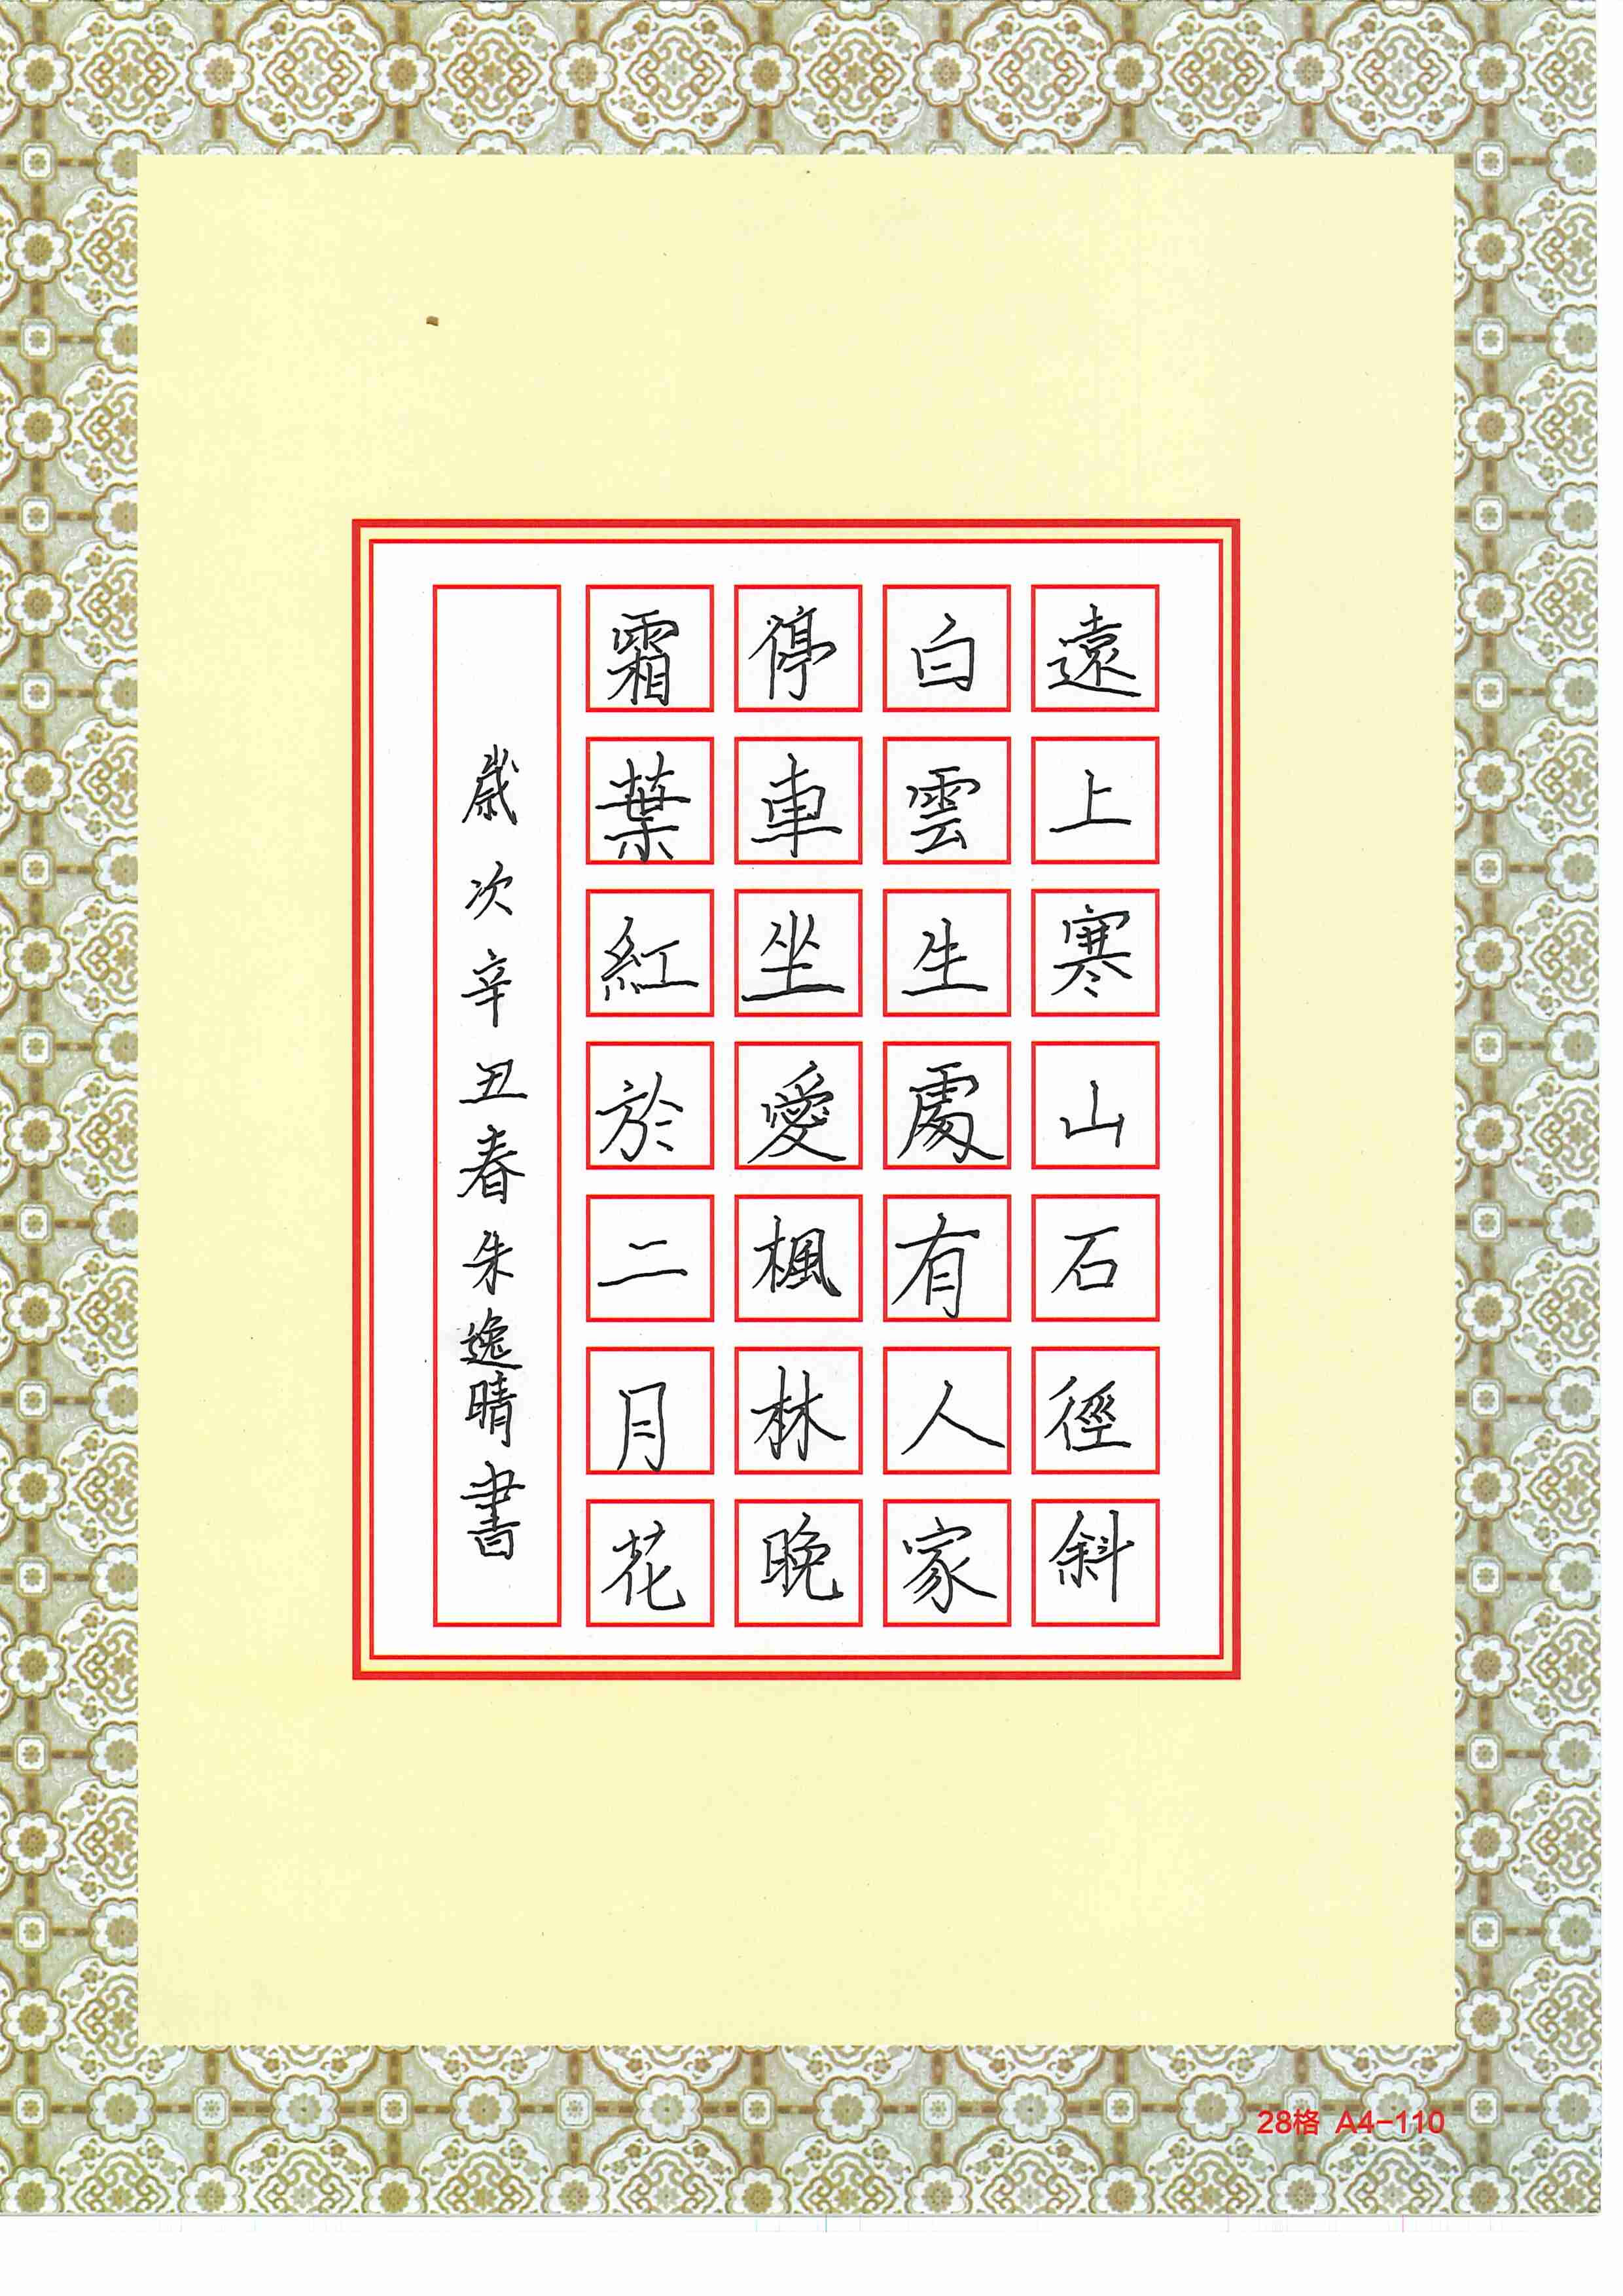 遠上寒山石徑斜
白雲生處有人家
停車坐愛楓林晚
霜葉紅於二月花
歲次辛丑春朱逸晴書
28格 A4-110